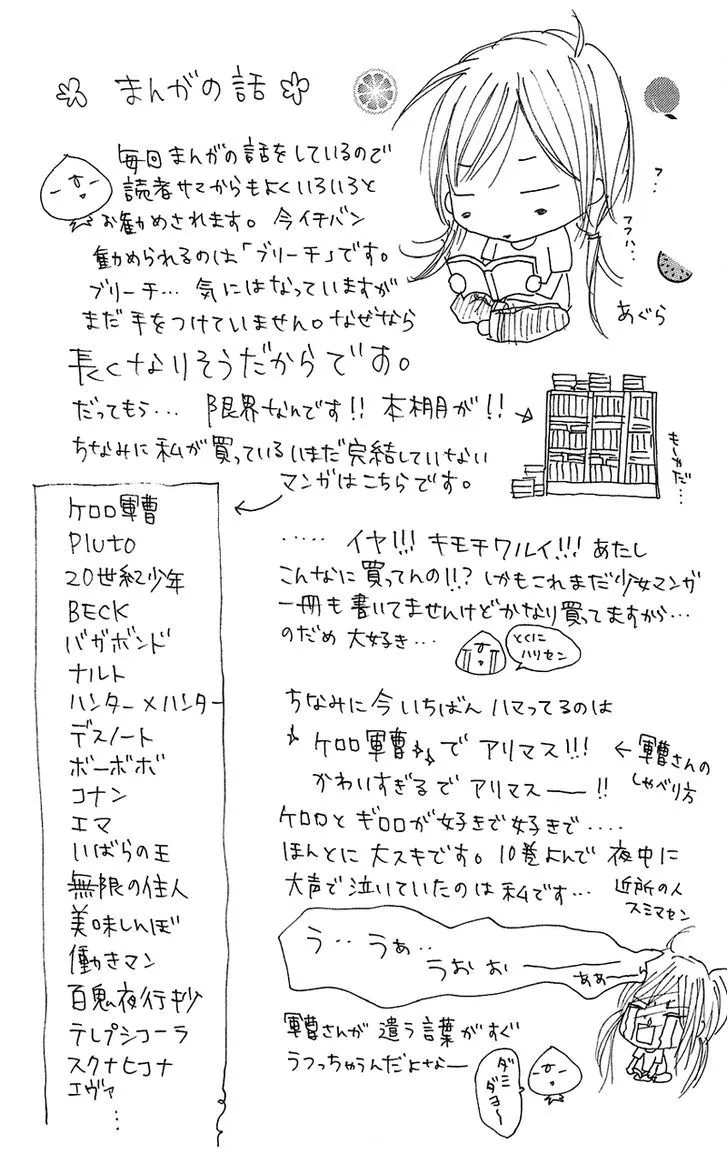 まんがの話
毎回まんがの話をしているので
読者サマからもよくいろいろと
お勧めされます。今イチバン
勧められるのは「ブリーチ」です。
ブリーチ… 気にはなっていますが
まだ手をつけていません。なぜなら
長くなりそうだからです。
フ…
フフハ…
あぐら
だってもう… 限界なんです!! 本棚が!!
も〜ゃだ…
ちなみに私が買っているいまだ完結していない
マンガはこちらです。
ケロロ軍曹
Pluto
20世紀少年
BECK
バガボンド
ナルト
ハンター×ハンター
デスノート
ボーボボ
コナン
エマ
いばらの王
無限の住人
美味しんぼ
働きマン
百鬼夜行抄
テレプシコーラ
スクナヒコナ
エヴァ
⋮
‥‥‥ イヤ!!! キモチワルイ!!! あたし
こんなに買ってんの!!? しかもこれまだ少女マンガ
一冊も書いてませんけどかなり買ってますから…
のだめ 大好き…
とくに
ハリセン
ちなみに今いちばんハマってるのは
ケロロ軍曹でアリマス!!!
←軍曹さんの
しゃべり方
かわいすぎるでアリマスー!!
ケロロとギロロが好きで好きで‥‥
ほんとに大スキです。10巻よんで夜中に
大声で泣いていたのは私です…
近所の人
スミマセン
う‥うぁ‥
うおぉー
ああー
軍曹さんが遣う言葉がすぐ
うつっちゃうんだよなー
ダミ
ダョ〜